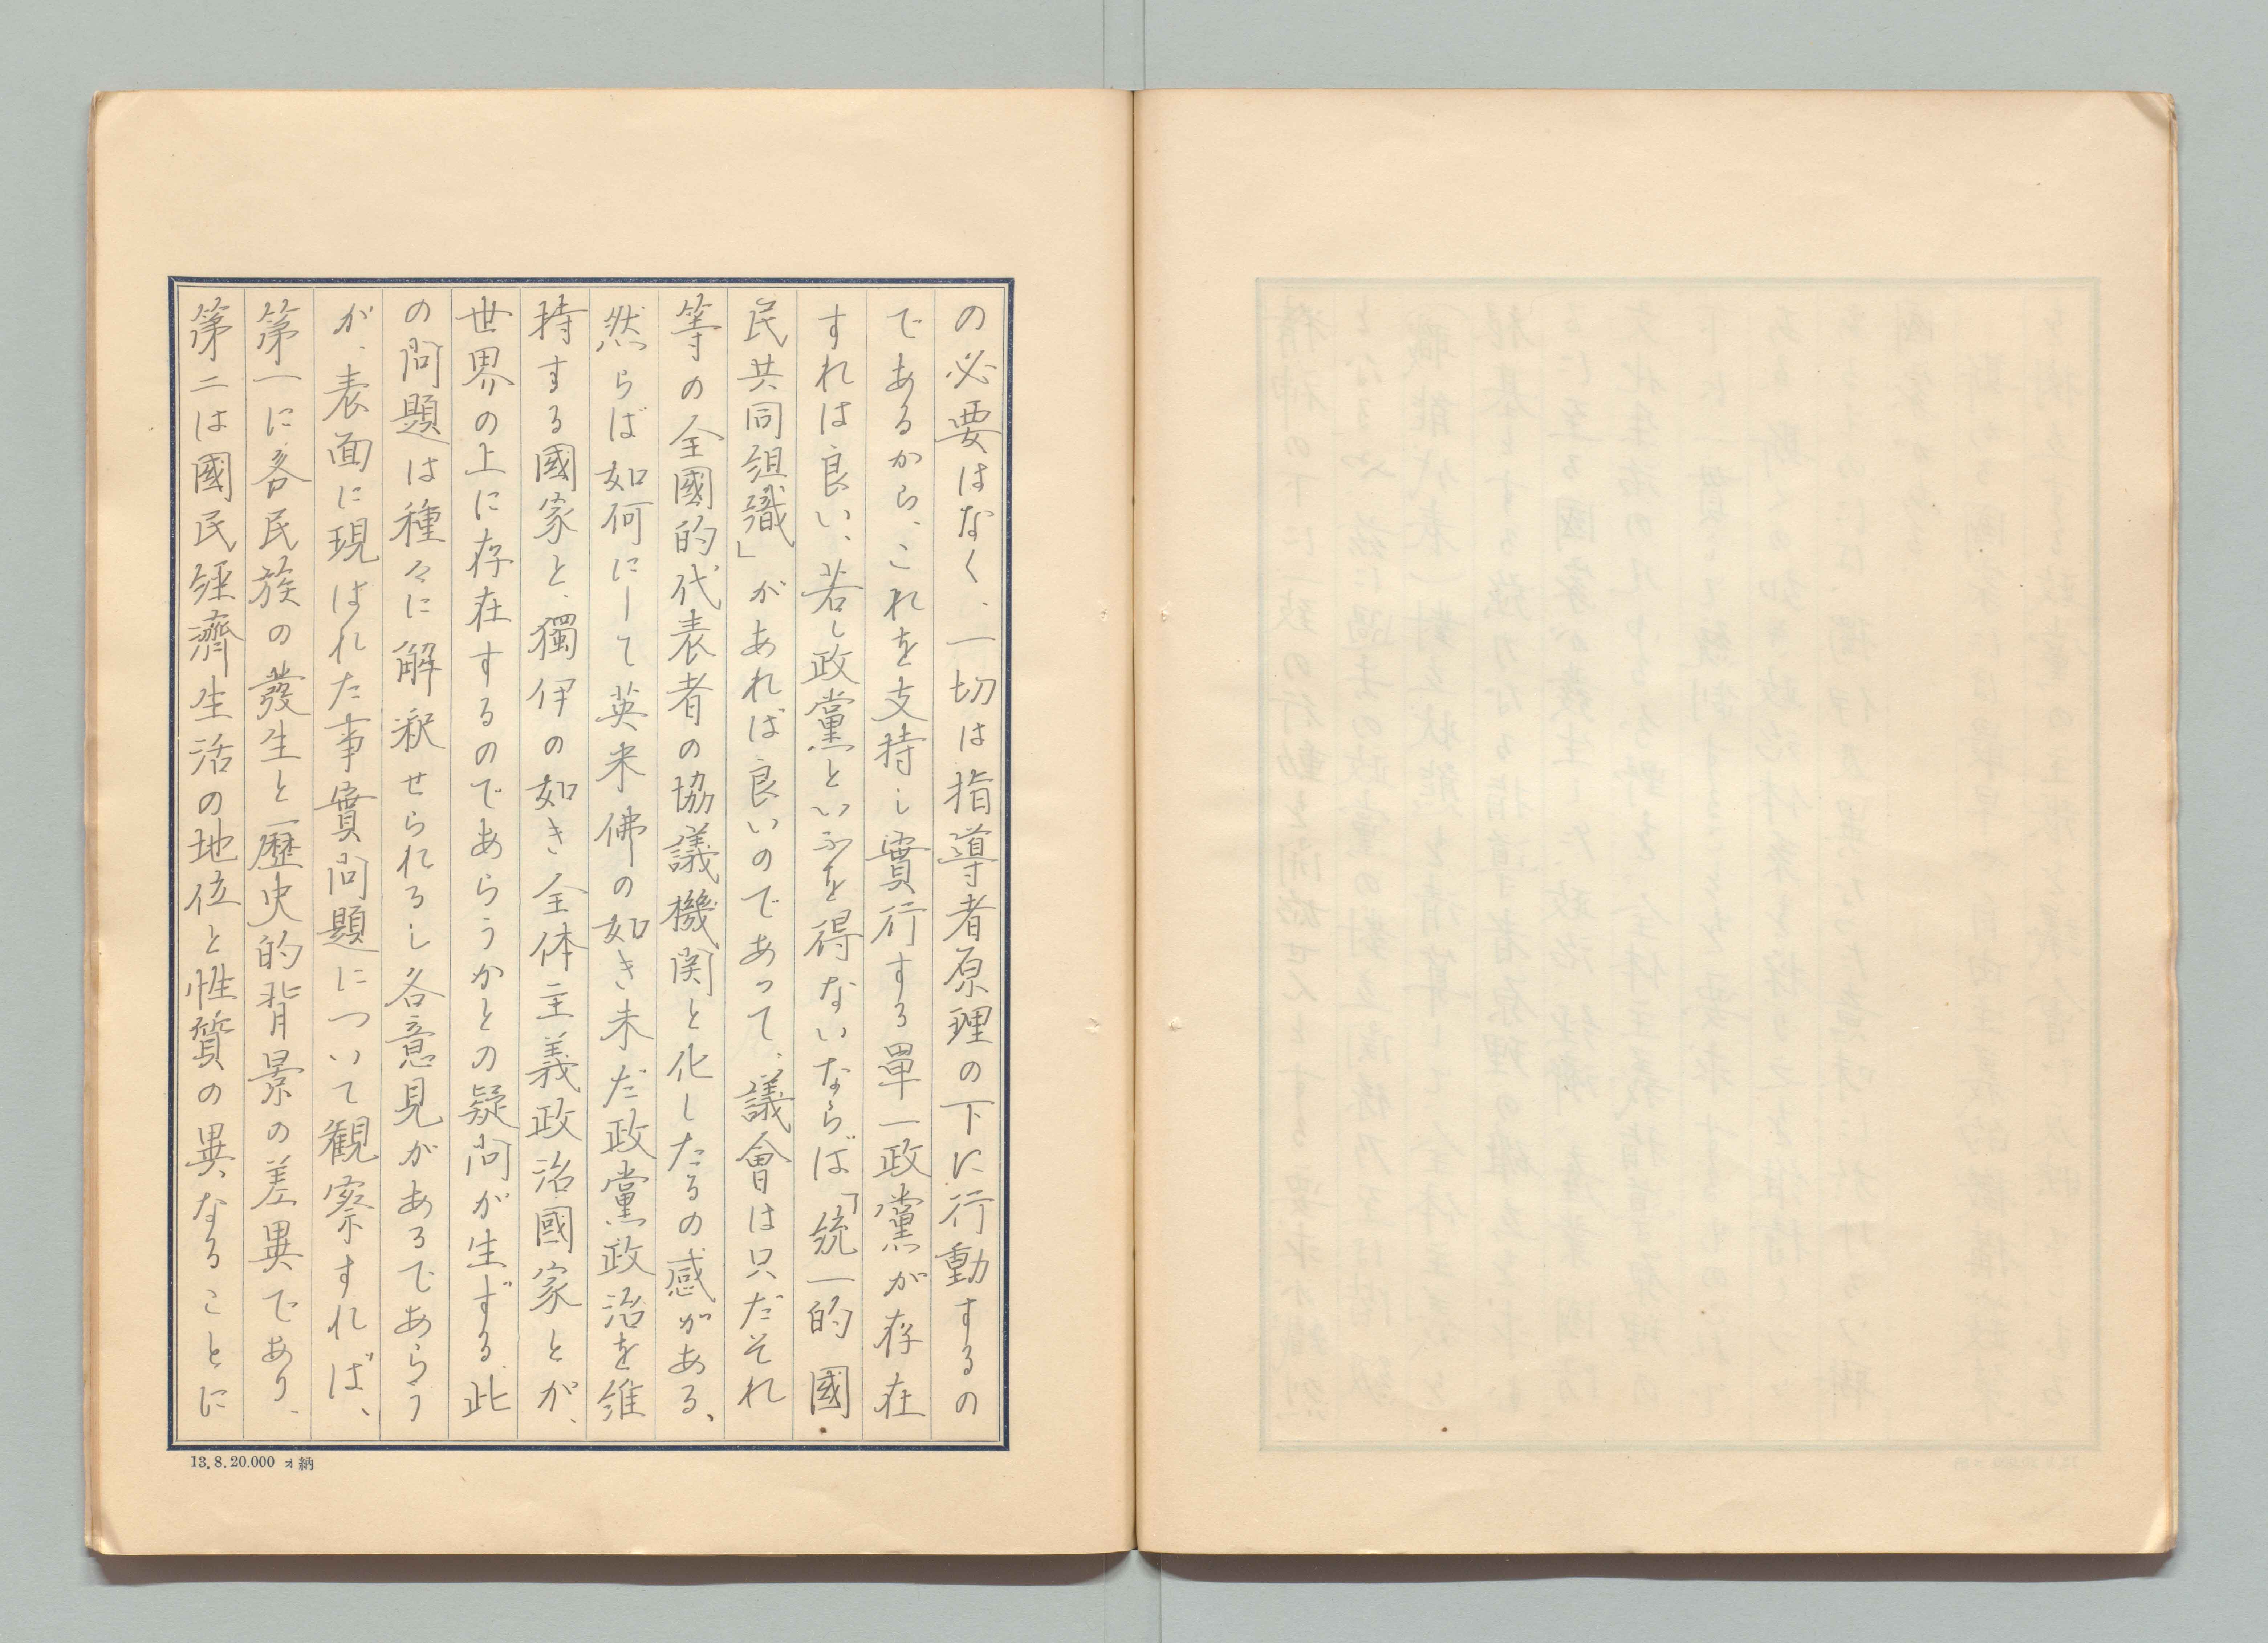 の必要はなく、一切は指導者原理の下に行動するの
であるから、これを支持し實行する單一政黨が存在
すれは良い、若し政黨といふを得ないならば「統一的國
民共同組織」があれば良いのであつて、議會は只だそれ
等の全國的代表者の協議機関と化したるの感がある、
然らば如何にして英米佛の如き未だ政黨政治を維
持する國家と、獨伊の如き全体主義政治國家とが、
世界の上に存在するのであらうかとの疑问が生ずる、此
の问題は種々に解釈せられるし各意見があるであらう
が、表面に現はれた事實问題について観察すれば、
第一に各民族の發生と歴史的背景の差異であり、
第二は國民経濟生活の地位と性質の異なることに
13.8.20.000 オ納